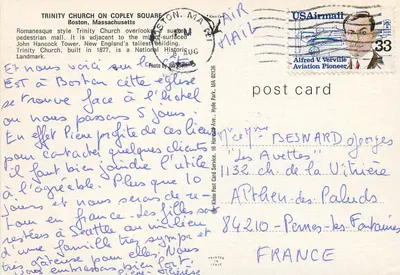 TRINITY CHURCH ON COPLEY SQUARE
Boston, Massachusetts
Romanesque style Trinity Church overlooks a
pedestrian mall. It is adjacent to the
John Hancock Tower, New England's tallest building.
Trinity Church, built in 1877, is a National Historic
Landmark.
BOSTON, MA
PM
AUG
AIR
MAIL
USAirmail
33
Alfred V. Verville
Aviation Pioneer
post card
Et nous voici sur la
Est à Boston cette église
se trouve face à l'hotel
ou nous passons 5 jours
En effet Pierre profite de ces lieux
pour contacter quelques clients
il faut bien joindre l'utile
à l'agréable. Plus que 10
jours et nous serons de re-
tour en france. Les filles sont
restées à Seattle au milieu
d'une famille très sympa et
très pour elles. Nous
vous embrassons bien fort
Mr et Mme BESNARD Georges
"Les Avettes"
1132 ch. de la Vitrière
Althen des Paluds
84210 - Pernes-les-Fontaines
FRANCE
PRINTED IN ITALY